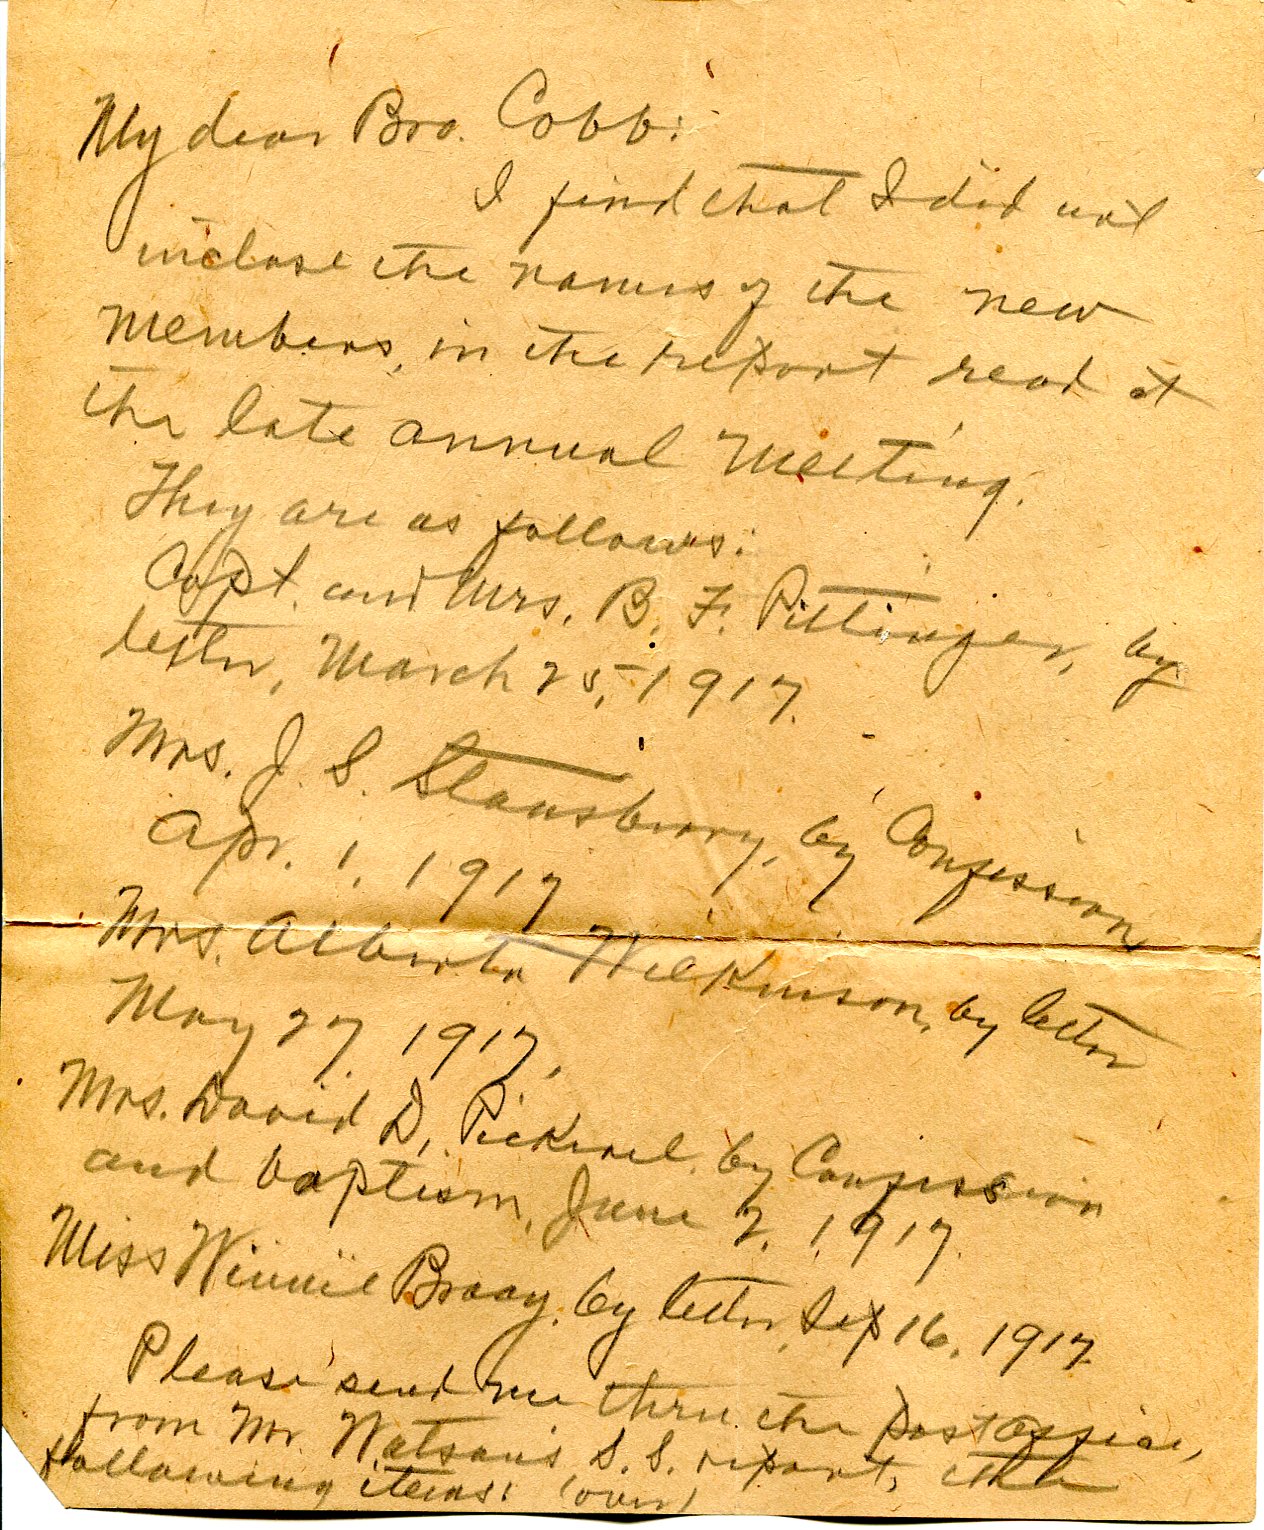 My dear Bro. Cobb:
I find that I did not
inclose the names of the new
members, in the report read at
the late annual meeting.
They are as follows:
Capt. and Mrs. B. F. Pittinger, by
letter, March 25, 1917.
Mrs. J. S. Stansberry, by Confession
Apr. 1, 1917
Mrs. Alberta Wilkinson, by letter
May 27, 1917,
Mrs. David D. Pickrel, by Confession
and baptism, June 2, 1917.
Miss Winnie Braay, by letter, Sep 16, 1917.
Please send me thru the Post Office,
from Mr. Watson's S. S. report, the
following items: (over)